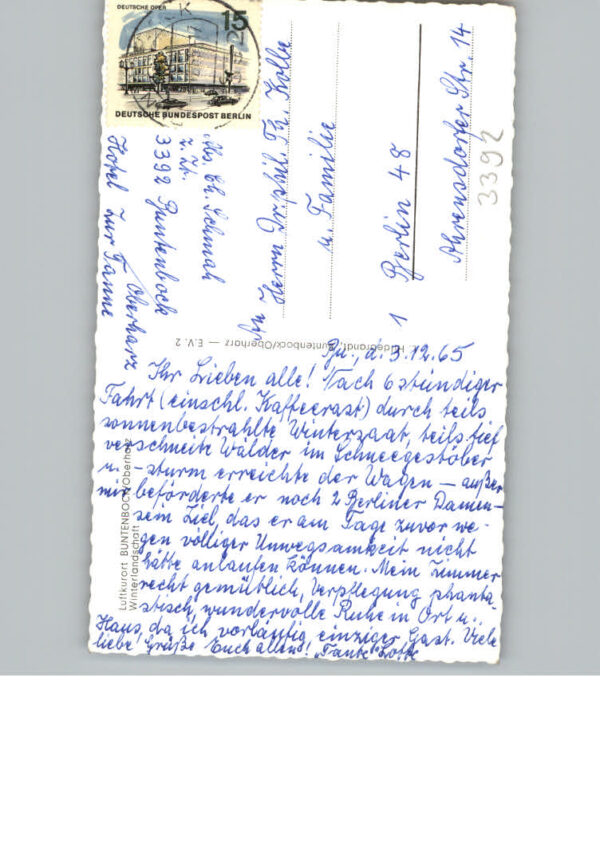 DEUTSCHE OPER
15
DEUTSCHE BUNDESPOST BERLIN
Schmah
z. Zt.
3392 Buntenbock
Oberharz
Hotel zur Tanne
An Herrn Dr. phil. Th. Kolbe
u. Familie
1 Berlin 48
Ahrensdorfer Str. 14
3392
Hildebrandt, Buntenbock/Oberharz — E.V. 2
Luftkurort BUNTENBOCK/Oberharz
Winterlandschaft
Bu., d. 3.12.65
Ihr Lieben alle! Nach 6 stündiger
Fahrt (einschl. Kaffeerast) durch teils
sonnenbestrahlte Wintersaat, teils tief
verschneite Wälder im Schneegestöber
u. -sturm erreichte der Wagen – außer
mir beförderte er noch 2 Berliner Damen –
sein Ziel, das er am Tage zuvor we-
gen völliger Unwegsamkeit nicht
hätte anlaufen können. Mein Zimmer
recht gemütlich, Verpflegung phanta-
stisch, wundervolle Ruhe in Ort u.
Haus, da ich vorläufig einziger Gast. Viele
liebe Grüße Euch allen! "Tante" Lotte